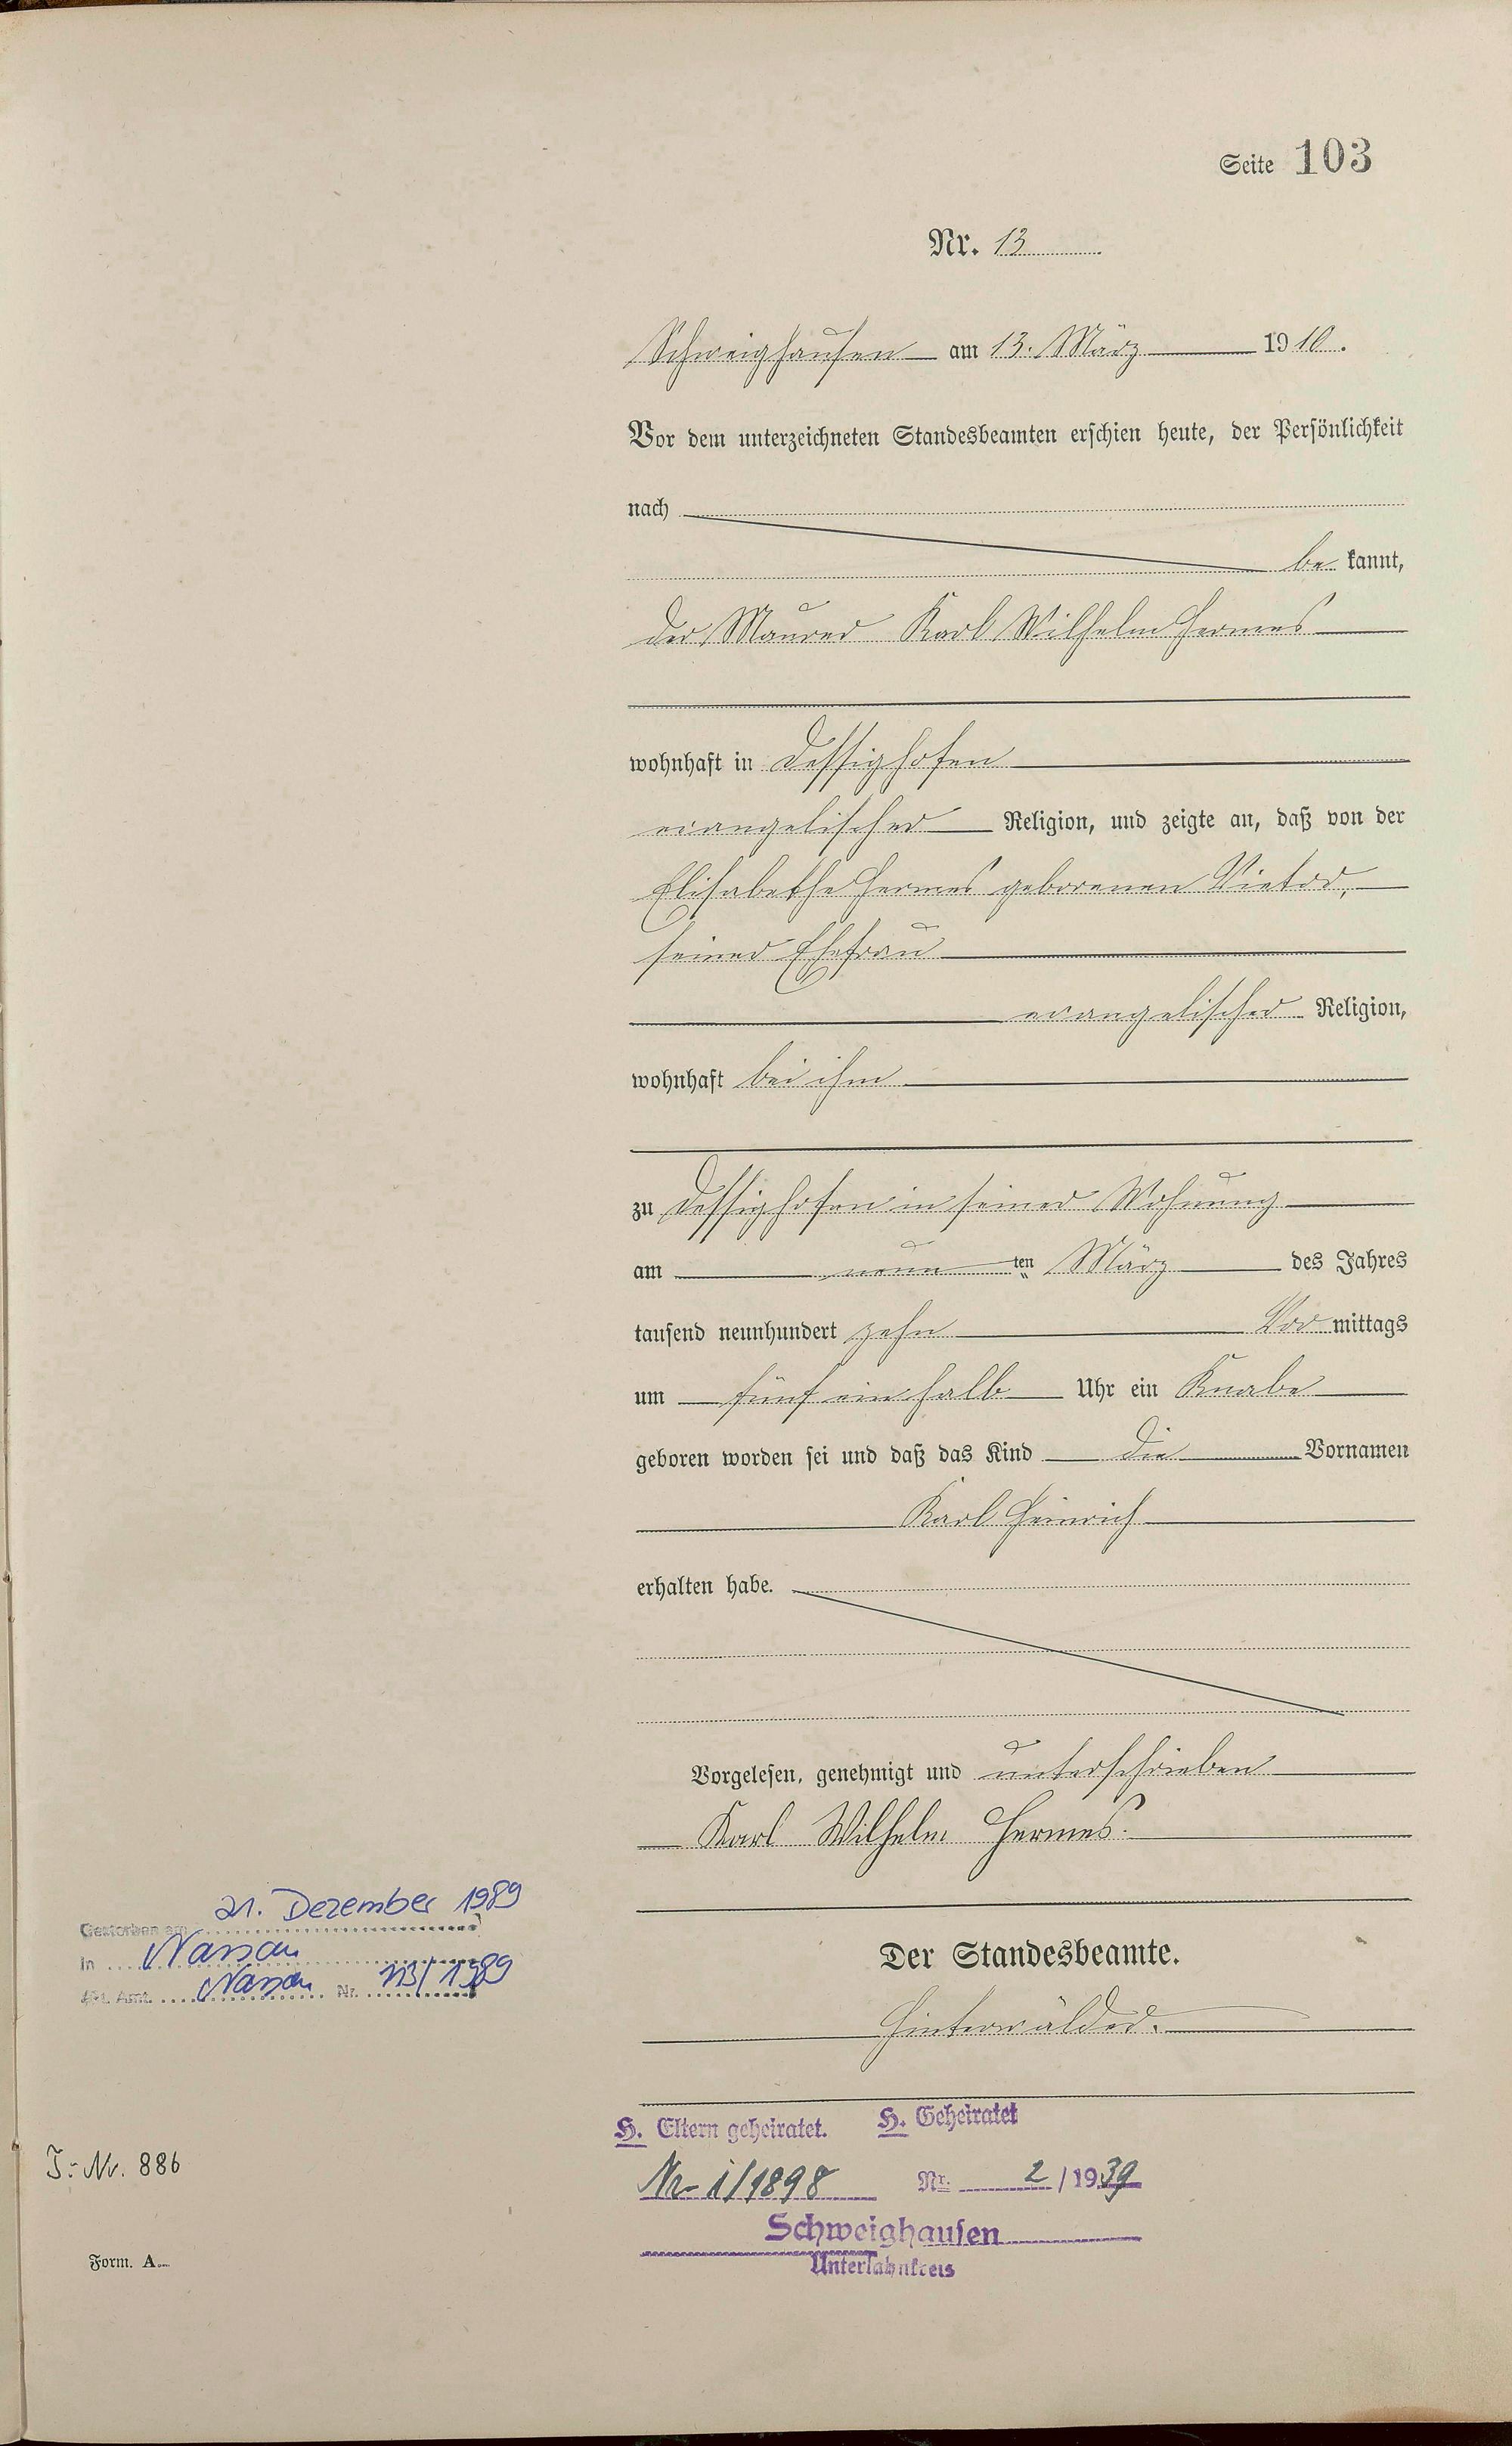 Seite 103
Nr. 13
Schweighausen am 13. März 1910.
Vor dem unterzeichneten Standesbeamten erschien heute, der Persönlichkeit
nach
be kannt,
der Maurer Karl Wilhelm Hermes
wohnhaft in Dessighofen
evangelischer Religion, und zeigte an, daß von der
Elisabethe Hermes geborenen Vietor,
seiner Ehefrau
evangelischer Religion,
wohnhaft bei ihm
zu Dessighofen in seiner Wohnung
am neun ten März des Jahres
tausend neunhundert zehn Vor mittags
um fünf ein halb Uhr ein Knabe
geboren worden sei und daß das Kind die Vornamen
Karl Heinrich
erhalten habe.
Vorgelesen, genehmigt und unterschrieben
Karl Wilhelm Hermes.
Gestorben am 21. Dezember 1989
in Nassau
St. Amt. Nassau Nr. 113/1989
Der Standesbeamte.
Hinterwälder.
H. Eltern geheiratet. H. Geheiratet
Nr. 1/1898 Nr. 2/1939
Schweighausen
Unterlahnkreis
J: Nr. 886
Form. A.